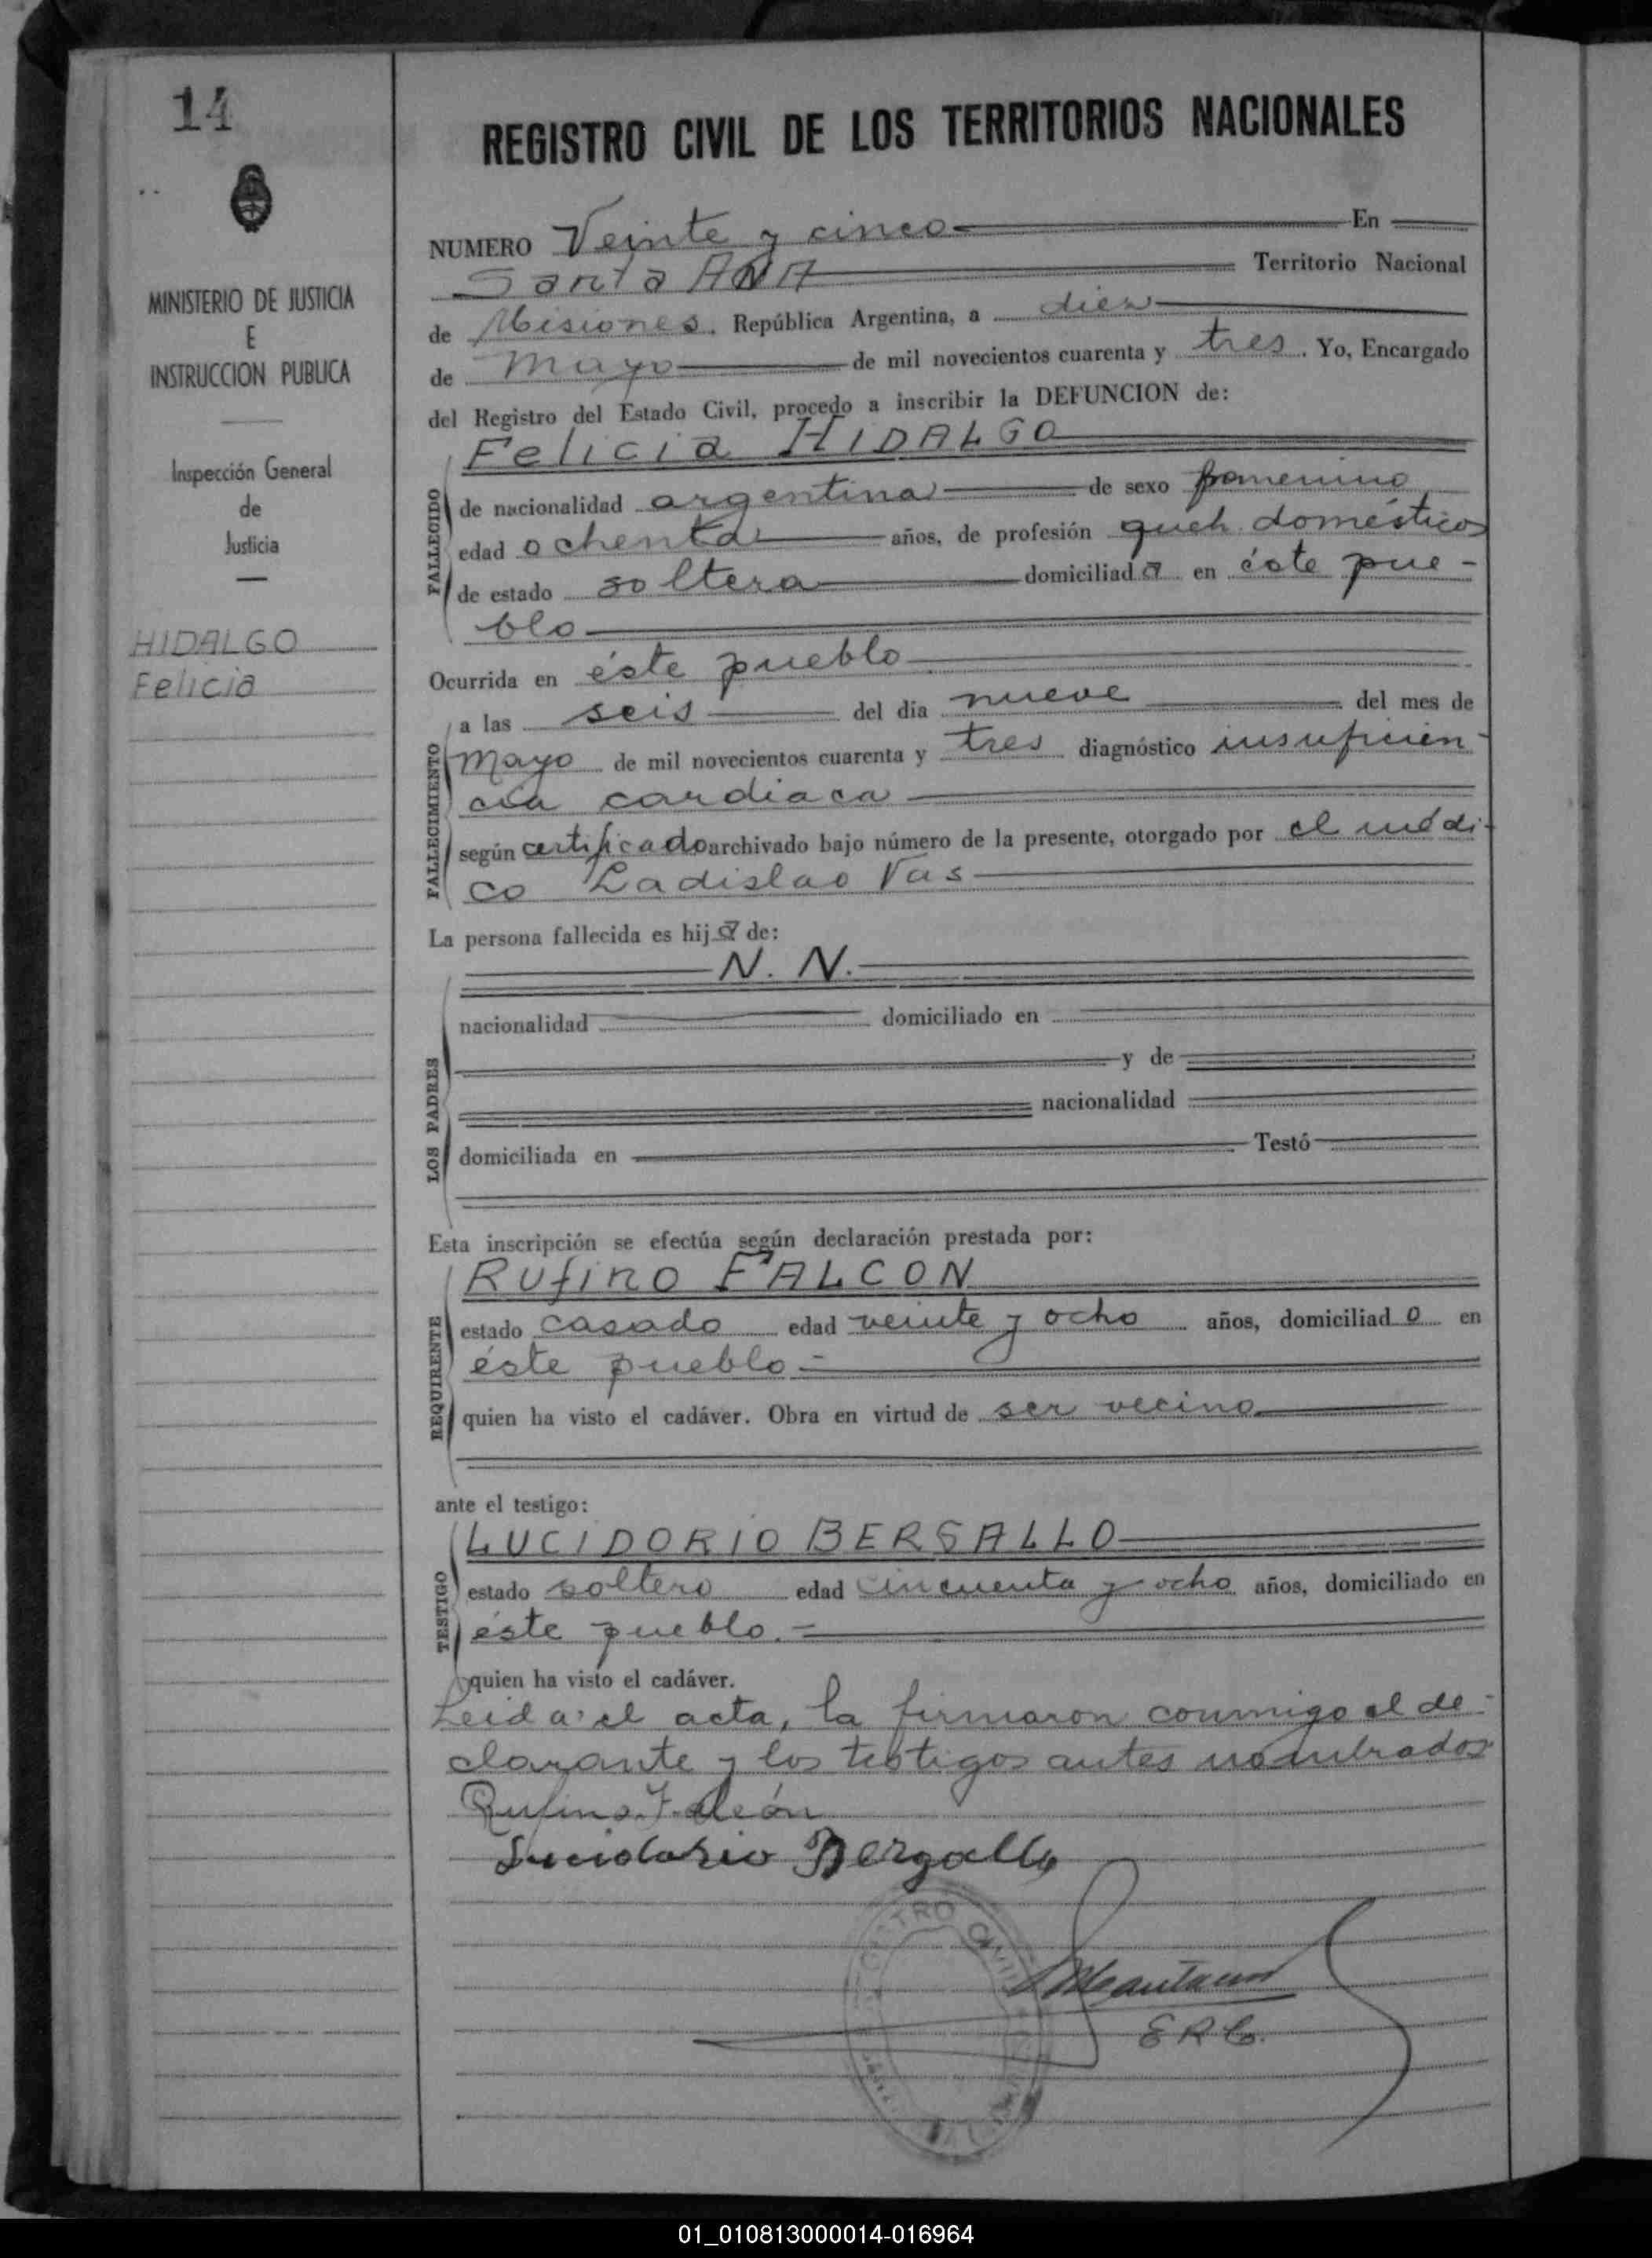 14
MINISTERIO DE JUSTICIA
E
INSTRUCCION PUBLICA
Inspección General
de
Justicia
HIDALGO
Felicia
REGISTRO CIVIL DE LOS TERRITORIOS NACIONALES
NUMERO Veinte y cinco En
Santa ANA Territorio Nacional
de Misiones, República Argentina, a diez
de mayo de mil novecientos cuarenta y tres. Yo, Encargado
del Registro del Estado Civil, procedo a inscribir la DEFUNCION de:
Felicia HIDALGO
FALLECIDO
de nacionalidad argentina de sexo femenino
edad ochenta años, de profesión queh. domésticos
de estado soltera domiciliada en éste pue-
blo
Ocurrida en éste pueblo
FALLECIMIENTO
a las seis del día nueve del mes de
mayo de mil novecientos cuarenta y tres diagnóstico insuficien-
cia cardiaca
según certificado archivado bajo número de la presente, otorgado por el médi-
co Ladislao Vas
La persona fallecida es hija de:
LOS PADRES
N. N.
nacionalidad domiciliado en
y de
nacionalidad
domiciliada en Testó
Esta inscripción se efectúa según declaración prestada por:
REQUIRENTE
Rufino FALCON
estado casado edad veinte y ocho años, domiciliado en
éste pueblo.-
quien ha visto el cadáver. Obra en virtud de ser vecino
ante el testigo:
TESTIGO
LUCIDORIO BERGALLO
estado soltero edad cincuenta y ocho años, domiciliado en
éste pueblo.-
quien ha visto el cadáver.
Leida el acta, la firmaron conmigo el de-
clarante y los testigos antes nombrados
Rufino Falcón
Lucidorio Bergallo
E R C.
01_010813000014-016964